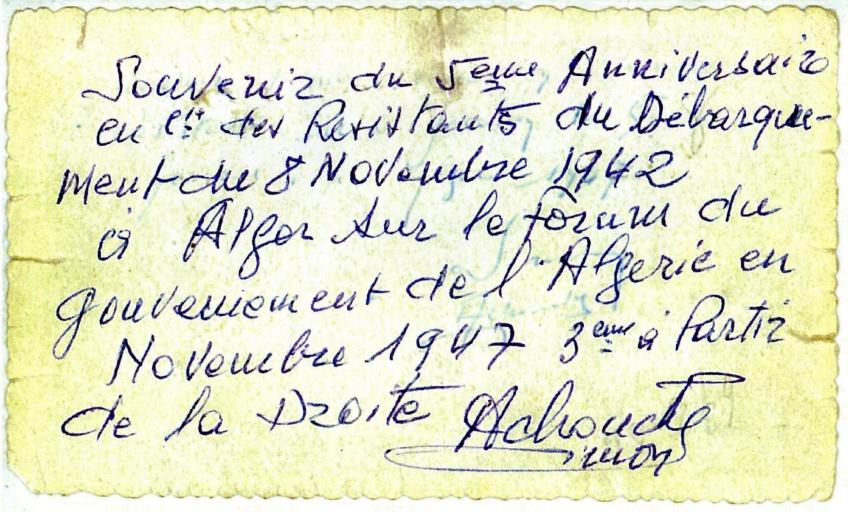 Souvenir du 5eme Anniversaire
en des Resistants du Débarque-
ment du 8 Novembre 1942
à Alger sur le forum du
gouvernement de l'Algerie en
Novembre 1947 3eme à Partir
de la Droite Achouche